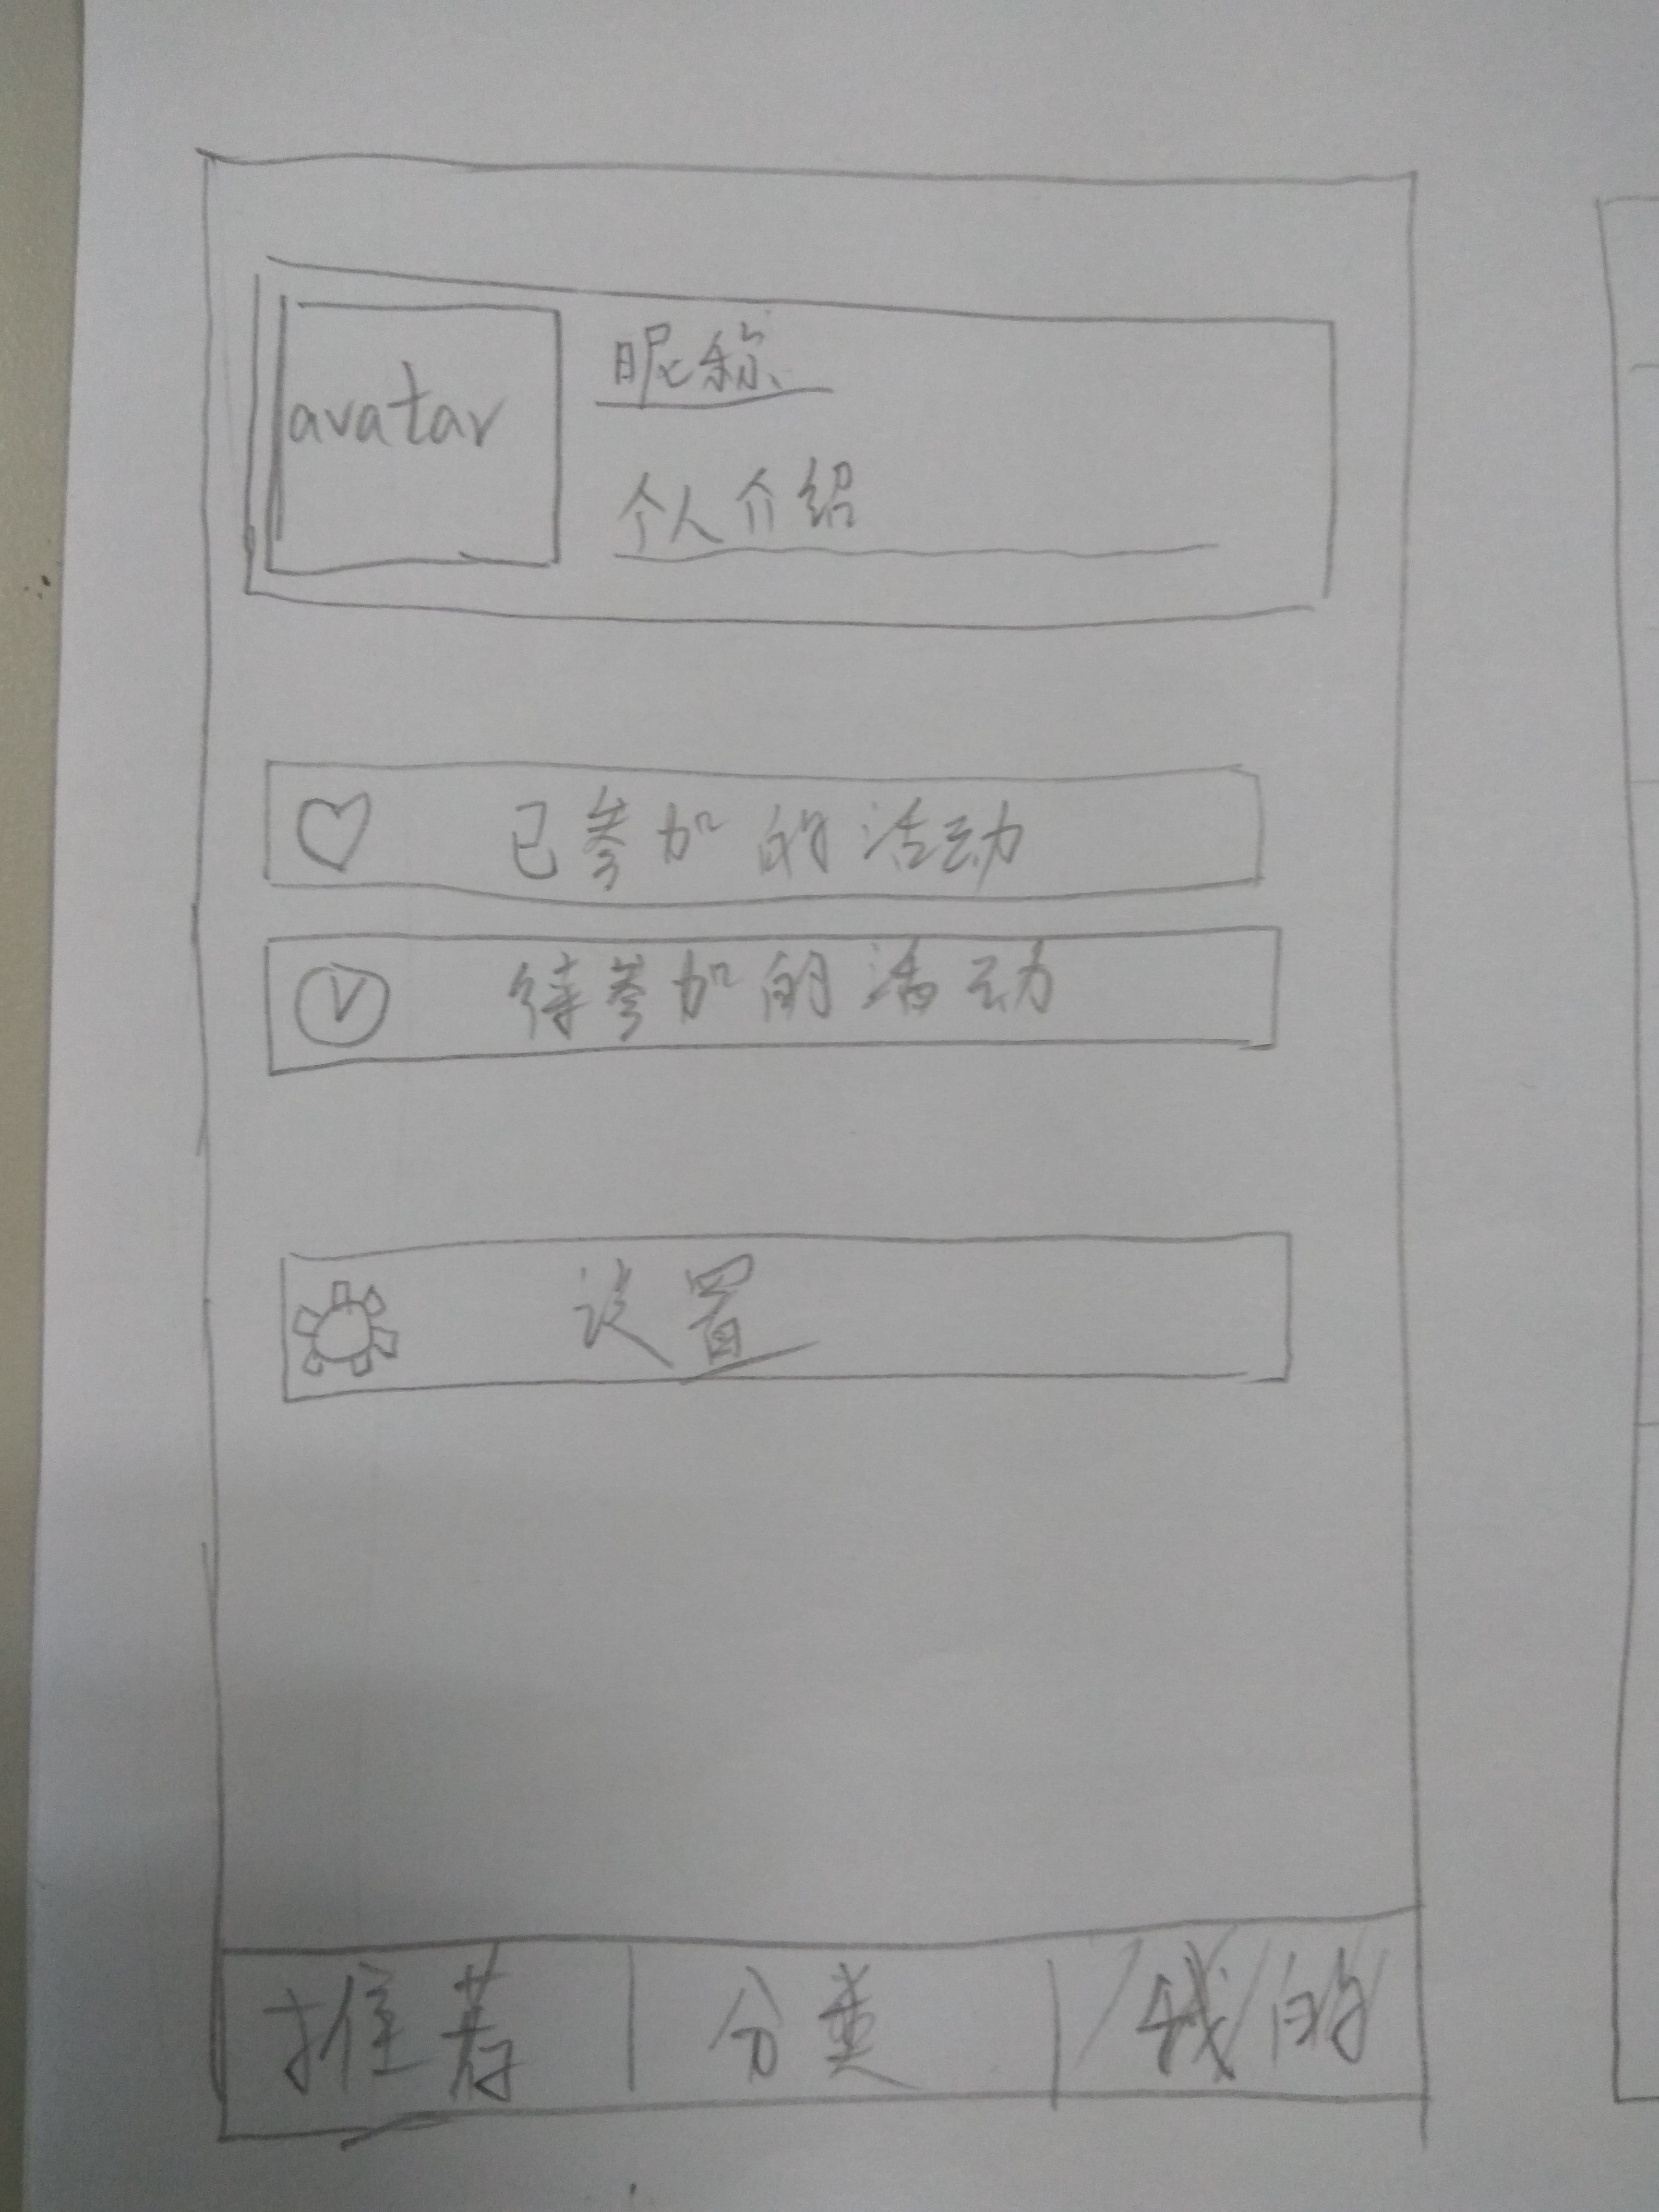 avatar
昵称
个人介绍
已参加的活动
待参加的活动
设置
推荐 分类 我的